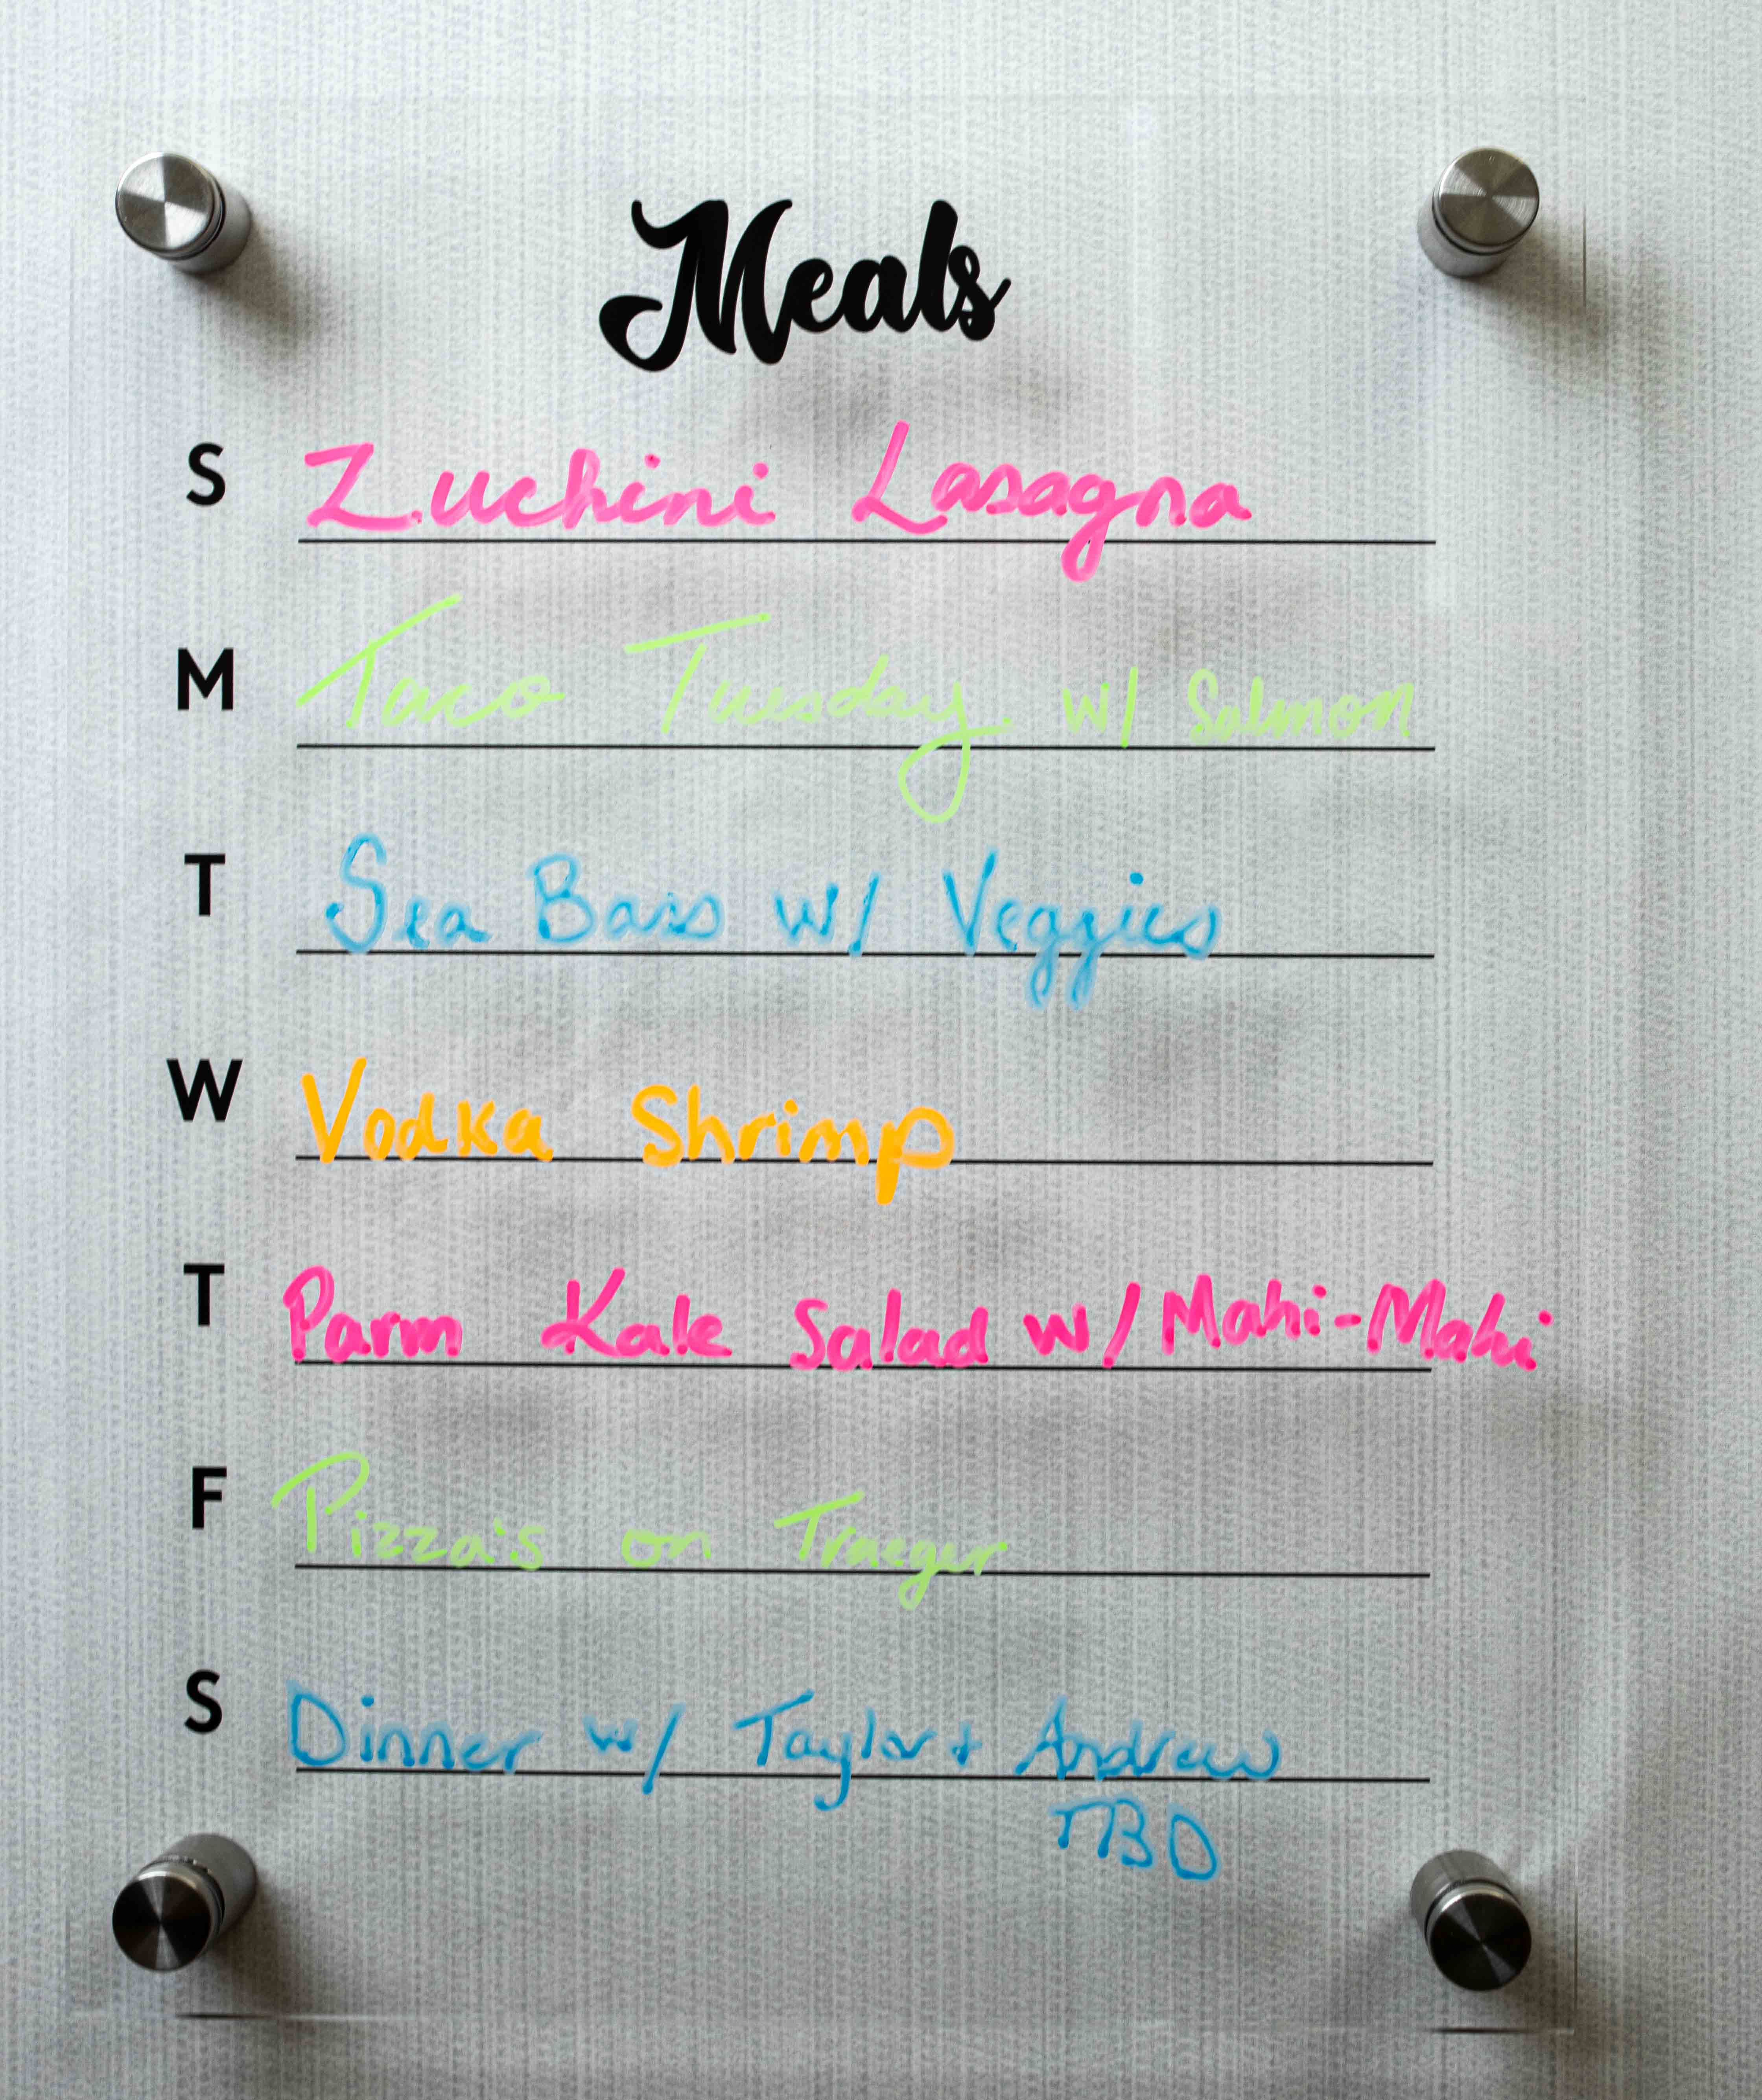 Meals
S Zuchini Lasagna
M Taco Tuesday w/ Salmon
T Sea Bass w/ Veggies
W Vodka Shrimp
T Parm Kale Salad w/ Mahi-Mahi
F Pizza's on Traeger
S Dinner w/ Taylor + Andrew
TBD